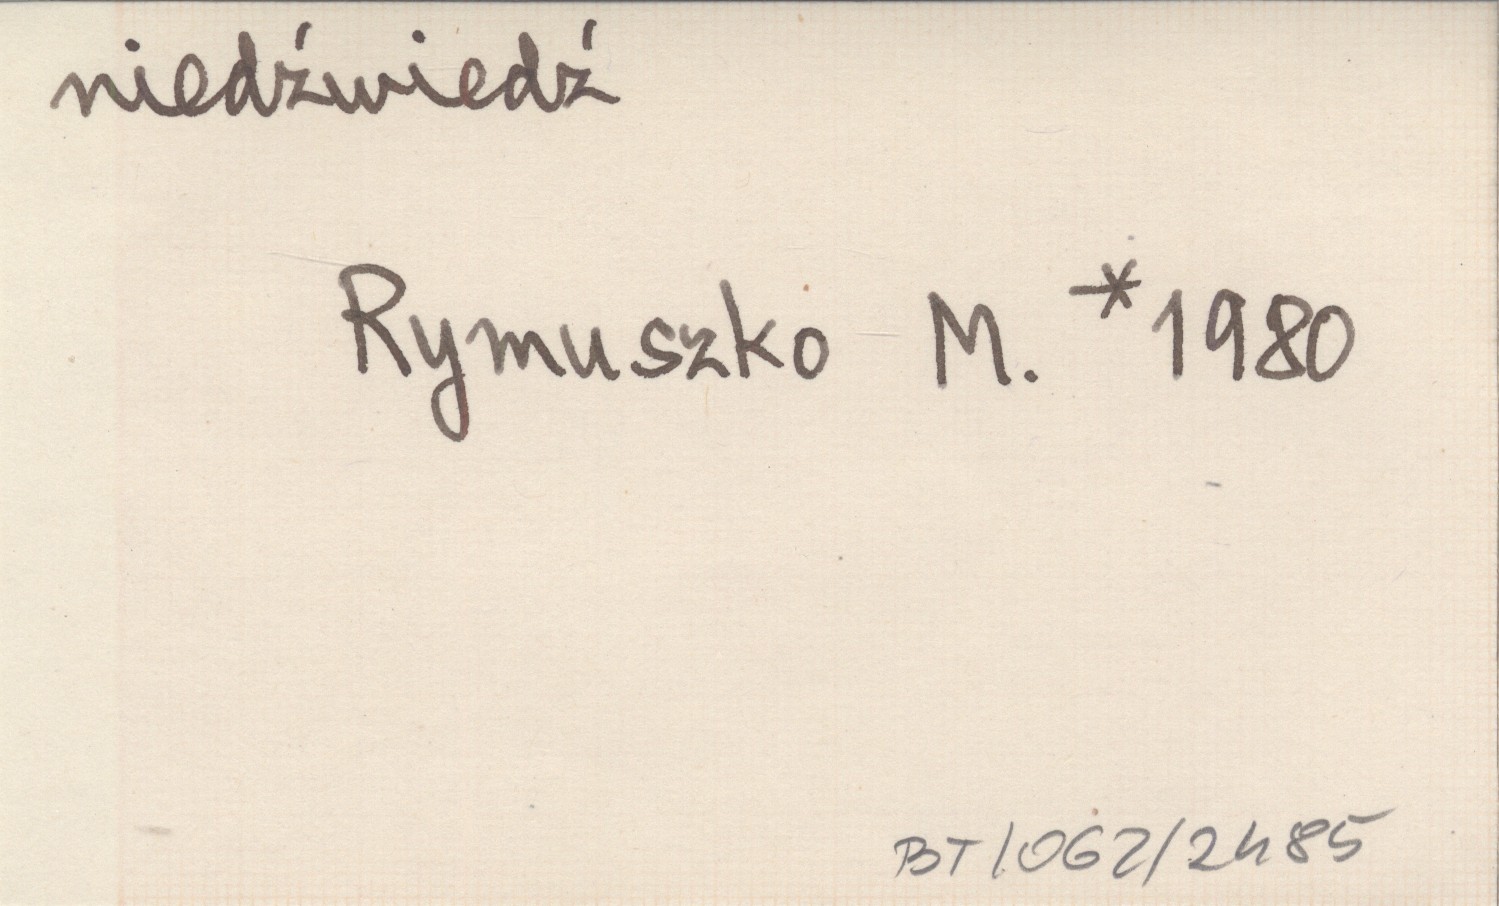 niedźwiedź
Rymuszko M. *1980
BT/062/2485